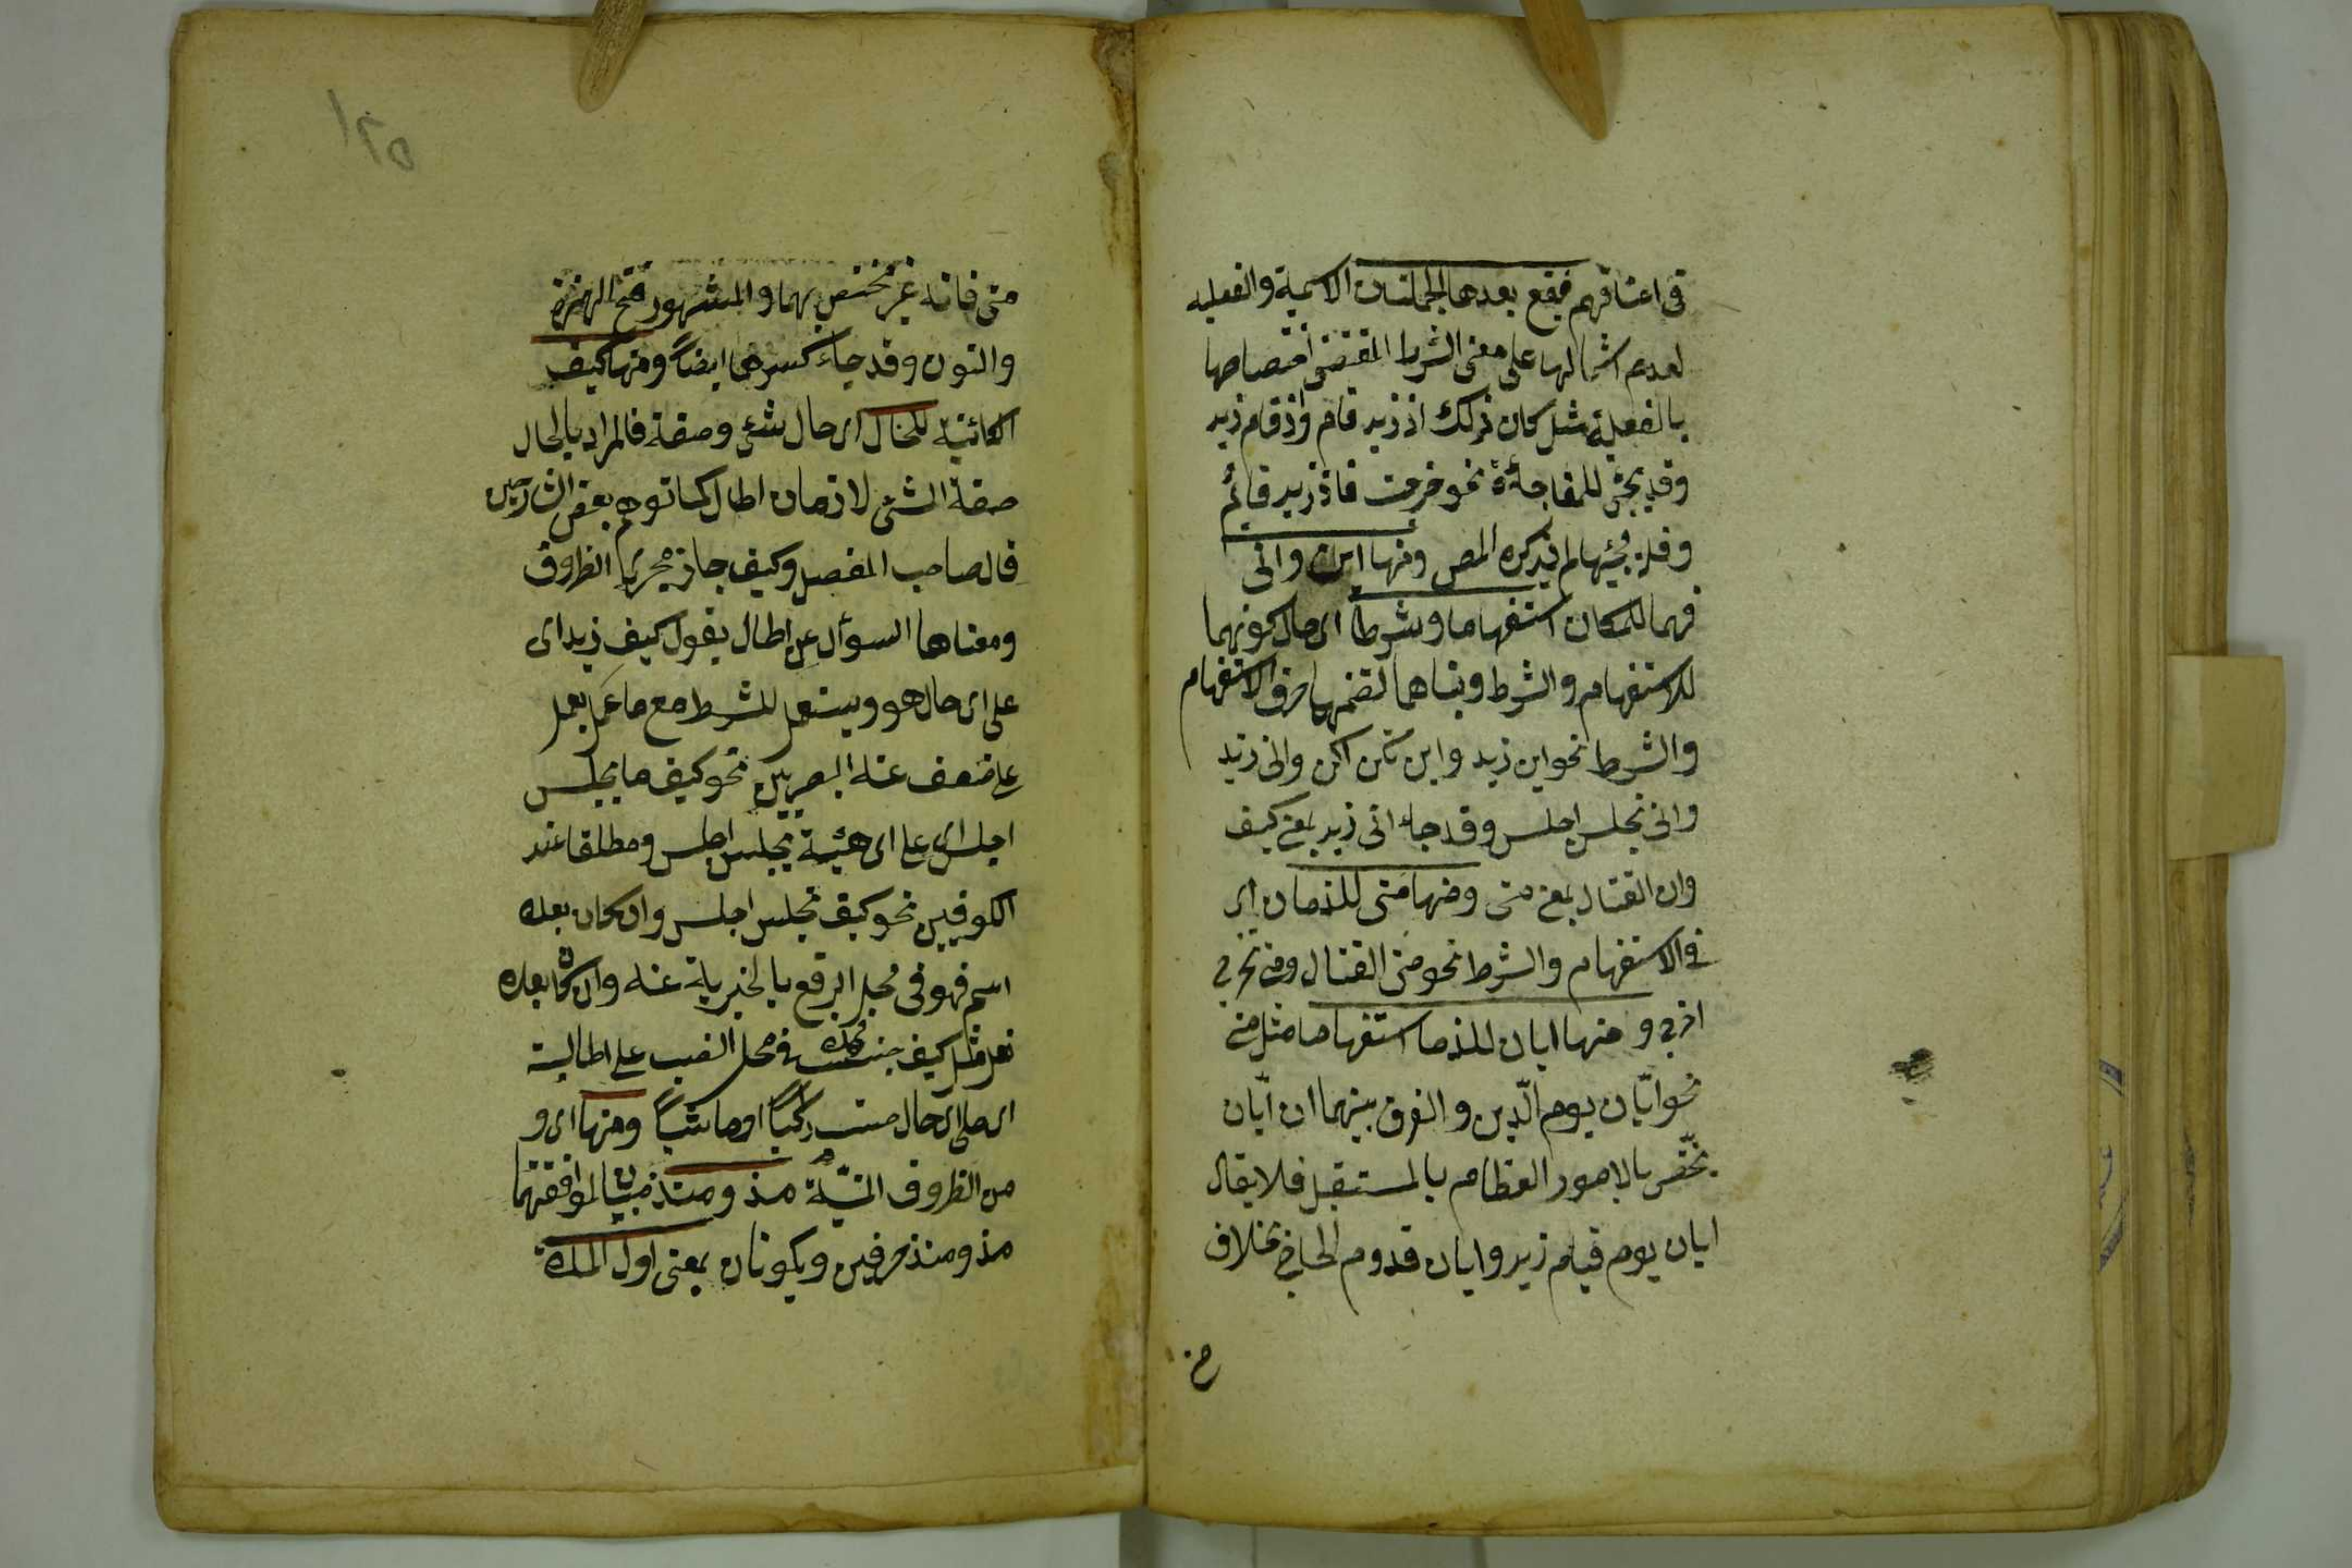 فى اعناقهم فيقع بعدها الجملتان الاسمية والفعليه
لعدم اشتمالها على معنى الشرط المقتضى اختصاصها
بالفعلية مثل كان ذلك اذ زيد قام واذ قام زيد
وقد يجئ للمفاجأة نحو خرجت فاذ زيد قائم
وقلة مجيئها لم يذكره المص ومنها اين وانى
فهما للمكان استفهاما وشرطا اى حال كونهما
للاستفهام والشرط وبناهما لتضمنهما حرف الاستفهام
والشرط نحو اين زيد واين تكن اكن وانى زيد
وانى تجلس اجلس وقد جاء انى زيد بمعنى كيف
وان القتال بمعنى متى ومنها متى للزمان اى
فى الاستفهام والشرط نحو متى القتال ومتى تخرج
اخرج ومنها ايان للزما استفهاما مثل متى
نحو ايّان يوم الدّين والفرق بينهما ان ايّان
يختّص بالامور العظام بالمستقبل فلا يقال
ايان يوم قيام زيد وايان قدوم الحاج بخلاف
متى فانه غير مختص بهما والمشهور فتح الهمزة
والنون وقد جاء كسرهما ايضاً ومنها كيف
الكائنة للحال اى حال شئ وصفة فالمراد بالحال
صفة الشئ لا زمان الحال كما توهم بعض الشارحين
قال صاحب المفصل وكيف جاز مجرى الظروف
ومعناها السوأل عن الحال يقول كيف زيد اى
على اى حال هو ويستعمل للشرط مع ما عمل بعمل
على ضعف عند البصريين نحو كيف ما تجلس
اجلس اى على اى هيئة تجلس اجلس ومطلقا عند
الكوفيين نحو كيف تجلس اجلس وان كان بعده
اسم فهو فى محل الرفع بالخبرية عنه وان كان بعده
فعل مثل كيف جئت فى محل النصب على الحالية
اى على اى حال جئت راكباً او ماشياً ومنها اى و
من الظروف المبنيّة مذ ومنذ مبنيان لموافقتهما
مذ ومنذ حرفين ويكونان بمعنى اول المدة